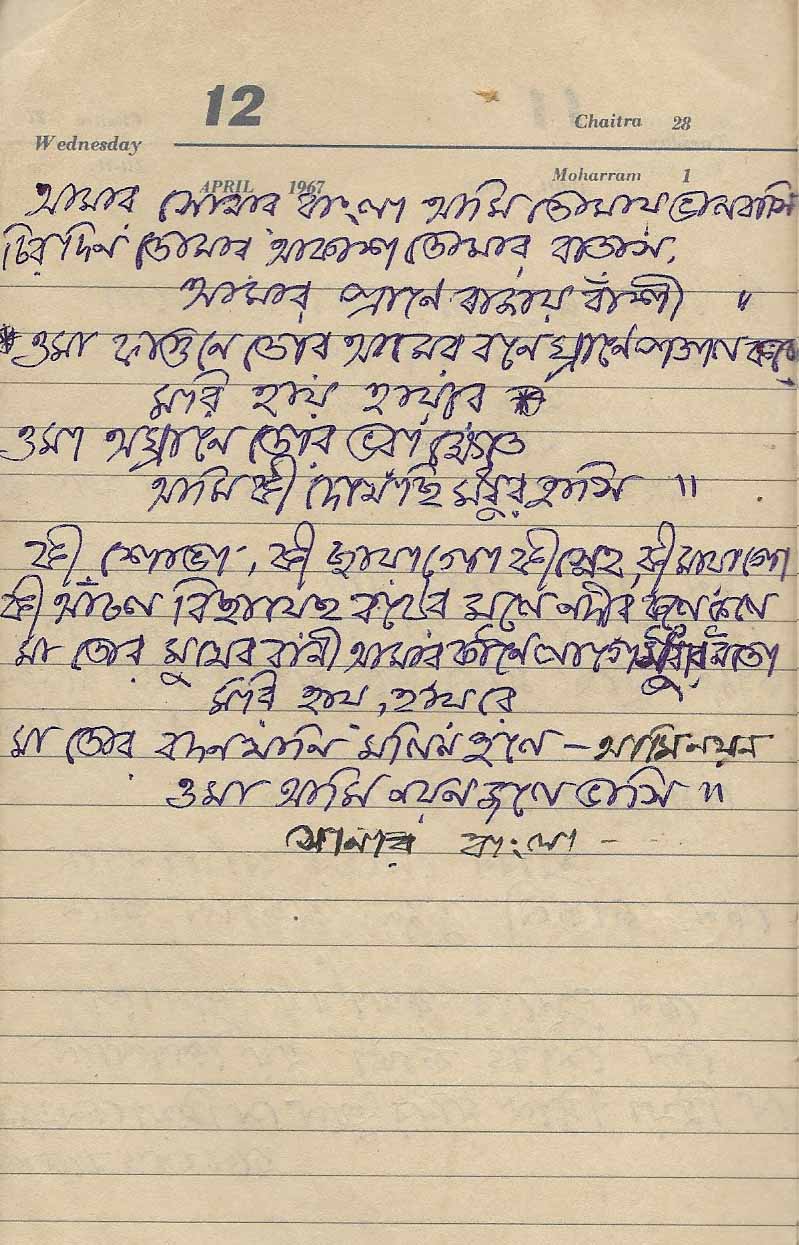 12
Chaitra 28
Wednesday
APRIL 1967 Moharram 1
আমার সোনার বাংলা আমি তোমায় ভালবাসি
চিরদিন তোমার আকাশ তোমার বাতাস,
আমার প্রাণে বাজায় বাঁশী ॥
ওমা ফাগুনে তোর আমের বনে ঘ্রানে পাগল করে
মরি হায় হায়রে
ওমা অঘ্রানে তোর ভরা ক্ষেতে
আমি কী দেখেছি মধুর হাসি ॥
কী শোভা, কী ছায়া গো কী স্নেহ, কী মায়া গো
কী আঁচল বিছায়েছ বটের মূলে নদীর কূলে কূলে
মা তোর মুখের বানী আমার কানে লাগে সুধার মতো
মরি হায়, হায় রে
মা তোর বদন খানি মলিন হলে - আমি নয়ন
ওমা আমি নয়ন জলে ভাসি ॥
সোনার বাংলা -